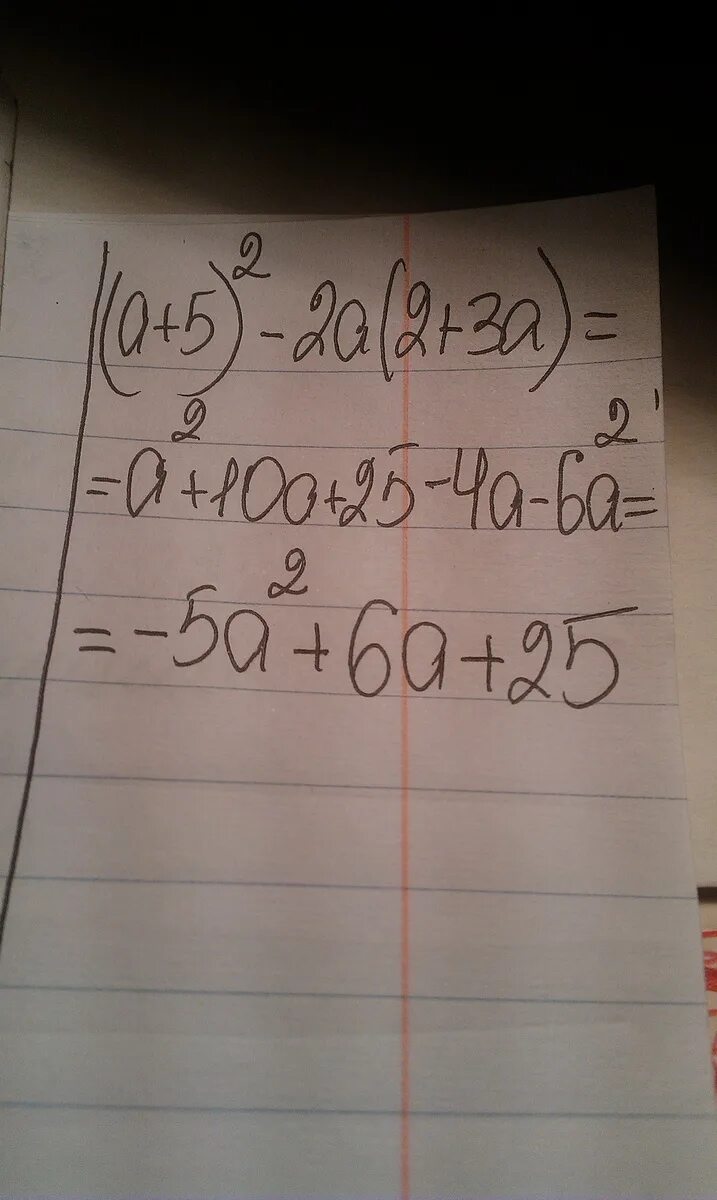 (a+5)² - 2a(2+3a) =
= a² + 10a + 25 - 4a - 6a² =
= -5a² + 6a + 25